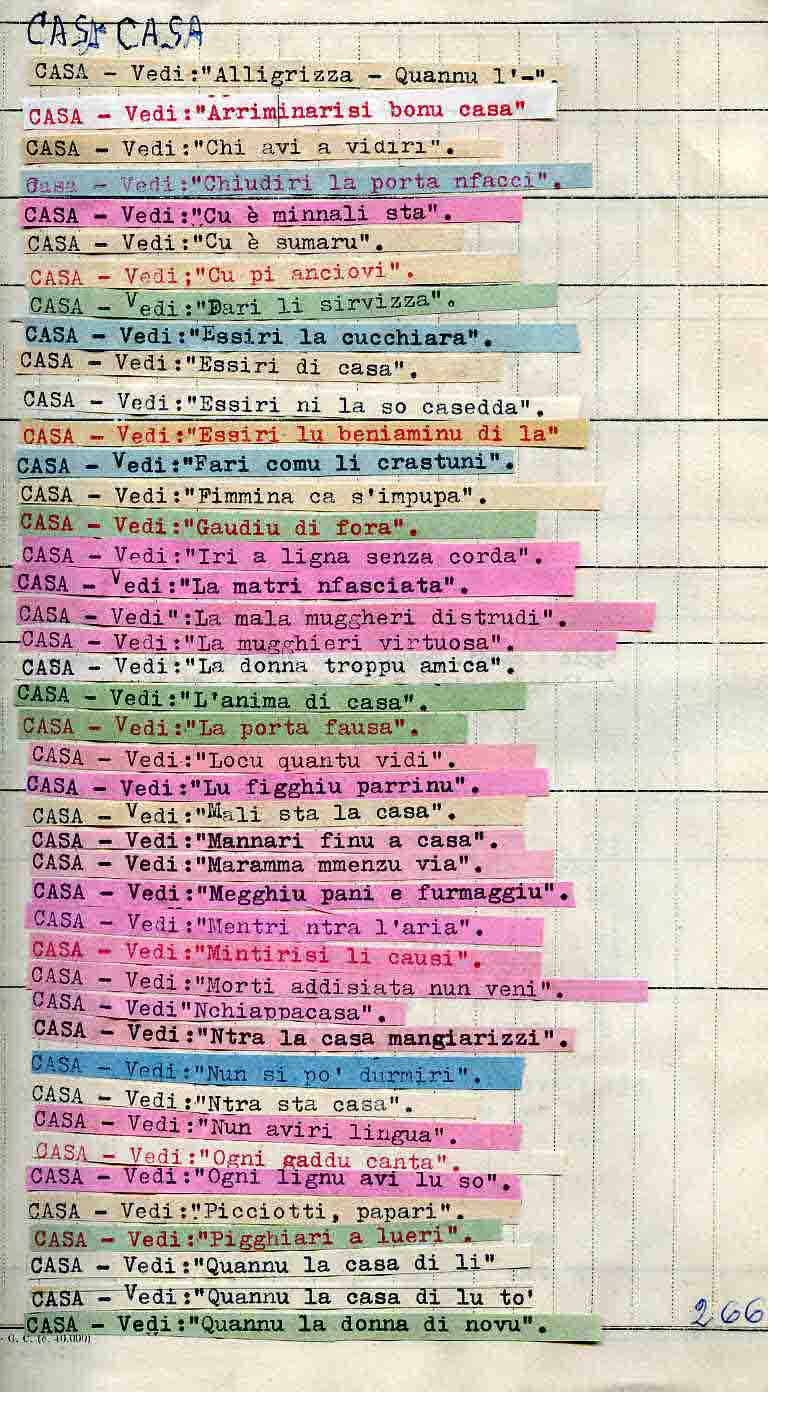 CASA CASA
CASA - Vedi:"Alligrizza - Quannu l'-".
CASA - Vedi:"Arriminarisi bonu casa"
CASA - Vedi:"Chi avi a vidiri".
Casa - Vedi:"Chiudiri la porta nfacci".
CASA - Vedi:"Cu è minnali sta".
CASA - Vedi:"Cu è sumaru".
CASA - Vedi;"Cu pi anciovi".
CASA - Vedi:"Dari li sirvizza".
CASA - Vedi:"Essiri la cucchiara".
CASA - Vedi:"Essiri di casa".
CASA - Vedi:"Essiri ni la so casedda".
CASA - Vedi:"Essiri lu beniaminu di la"
CASA - Vedi:"Fari comu li crastuni".
CASA - Vedi:"Fimmina ca s'impupa".
CASA - Vedi:"Gaudiu di fora".
CASA - Vedi:"Iri a ligna senza corda".
CASA - Vedi:"La matri nfasciata".
CASA - Vedi":La mala muggheri distrudi".
CASA - Vedi:"La mugghieri virtuosa".
CASA - Vedi:"La donna troppu amica".
CASA - Vedi:"L'anima di casa".
CASA - Vedi:"La porta fausa".
CASA - Vedi:"Locu quantu vidi".
CASA - Vedi:"Lu figghiu parrinu".
CASA - Vedi:"Mali sta la casa".
CASA - Vedi:"Mannari finu a casa".
CASA - Vedi:"Maramma mmenzu via".
CASA - Vedi:"Megghiu pani e furmaggiu".
CASA - Vedi:"Mentri ntra l'aria".
CASA - Vedi:"Mintirisi li causi".
CASA - Vedi:"Morti addisiata nun veni".
CASA - Vedi"Nchiappacasa".
CASA - Vedi:"Ntra la casa mangiarizzi".
CASA - Vedi:"Nun si po' durmiri".
CASA - Vedi:"Ntra sta casa".
CASA - Vedi:"Nun aviri lingua".
CASA - Vedi:"Ogni gaddu canta".
CASA - Vedi:"Ogni lignu avi lu so".
CASA - Vedi:"Picciotti, papari".
CASA - Vedi:"Pigghiari a lueri".
CASA - Vedi:"Quannu la casa di li"
CASA - Vedi:"Quannu la casa di lu to'
CASA - Vedi:"Quannu la donna di novu".
266